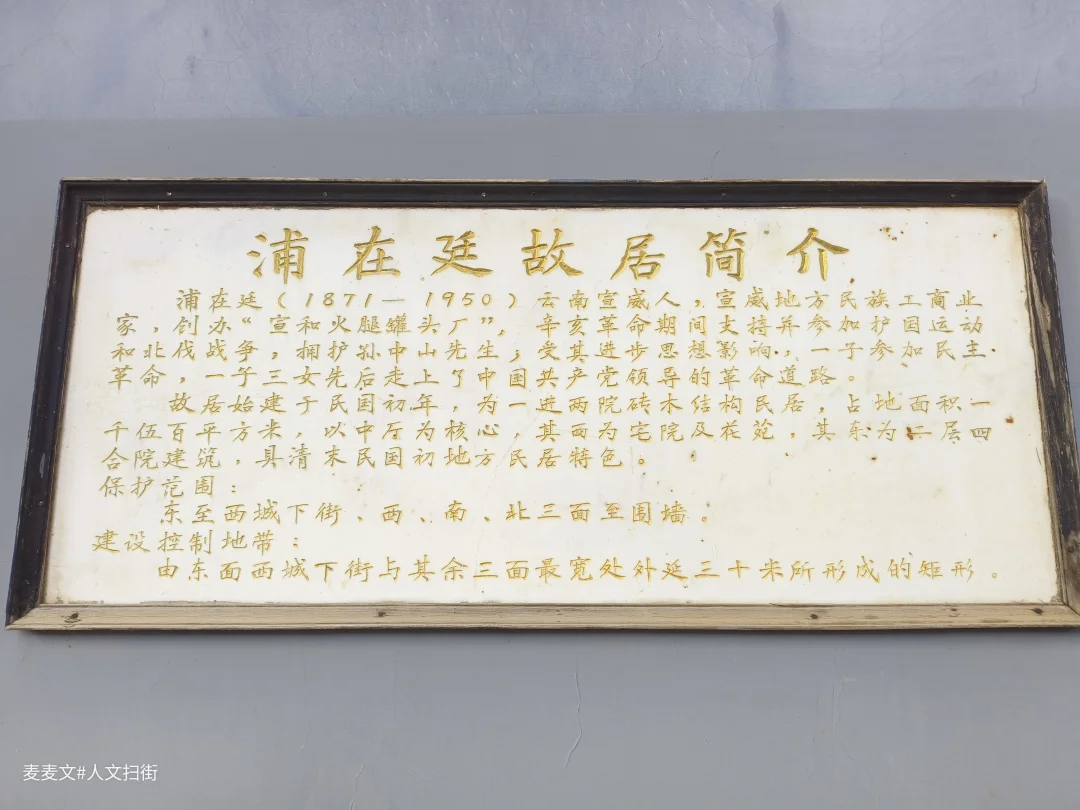 浦在廷故居简介
浦在廷(1871—1950)云南宣威人,宣威地方民族工商业
家,创办“宣和火腿罐头厂”,辛亥革命期间支持并参加护国运动
和北伐战争,拥护孙中山先生,受其进步思想影响,一子参加民主
革命,一子三女先后走上了中国共产党领导的革命道路。
故居始建于民国初年,为一进两院砖木结构民居,占地面积一
千伍百平方米,以中厅为核心,其西为宅院及花苑,其东为二层四
合院建筑,具清末民国初地方民居特色。
保护范围:
东至西城下街、西、南、北三面至围墙。
建设控制地带:
由东面西城下街与其余三面最宽处外延三十米所形成的矩形。
麦麦文#人文扫街